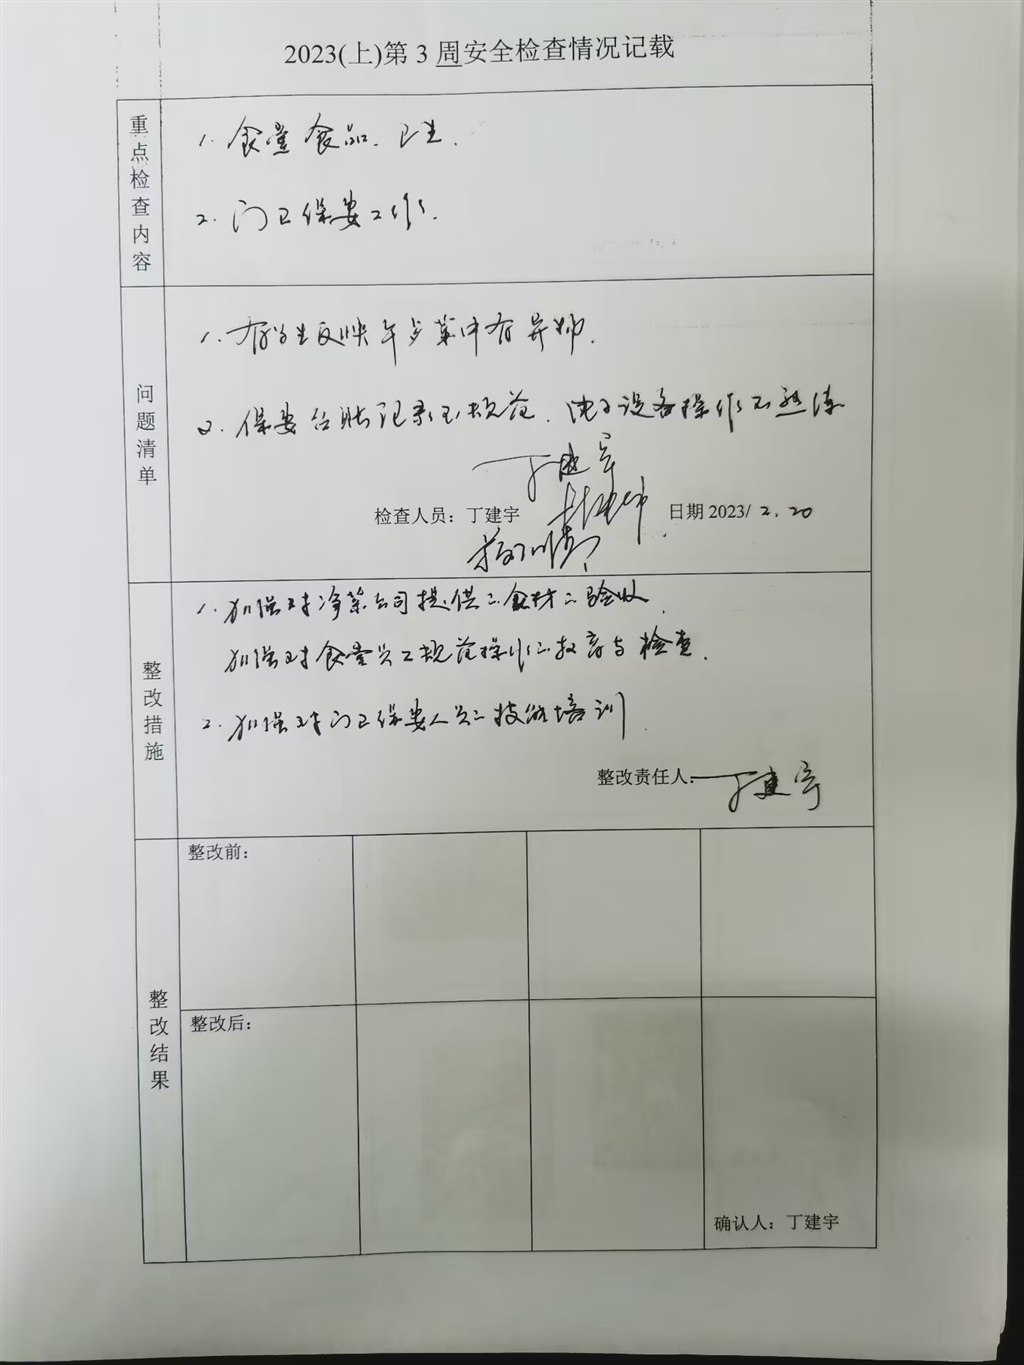 2023(上)第 3 周安全检查情况记载
重点检查内容
1. 食堂食品、卫生.
2. 门卫保安工作.
问题清单
1. 有学生反映午餐菜中有异物.
2. 保安台账记录不规范. 电子设备操作不熟练
丁建宇
检查人员：丁建宇
日期 2023/ 2.20
整改措施
1. 加强对净菜公司提供的食材的验收.
加强对食堂员工规范操作的教育与检查.
2. 加强对门卫保安人员的技能培训.
整改责任人: 丁建宇
整改结果
整改前：
整改后：
确认人：丁建宇